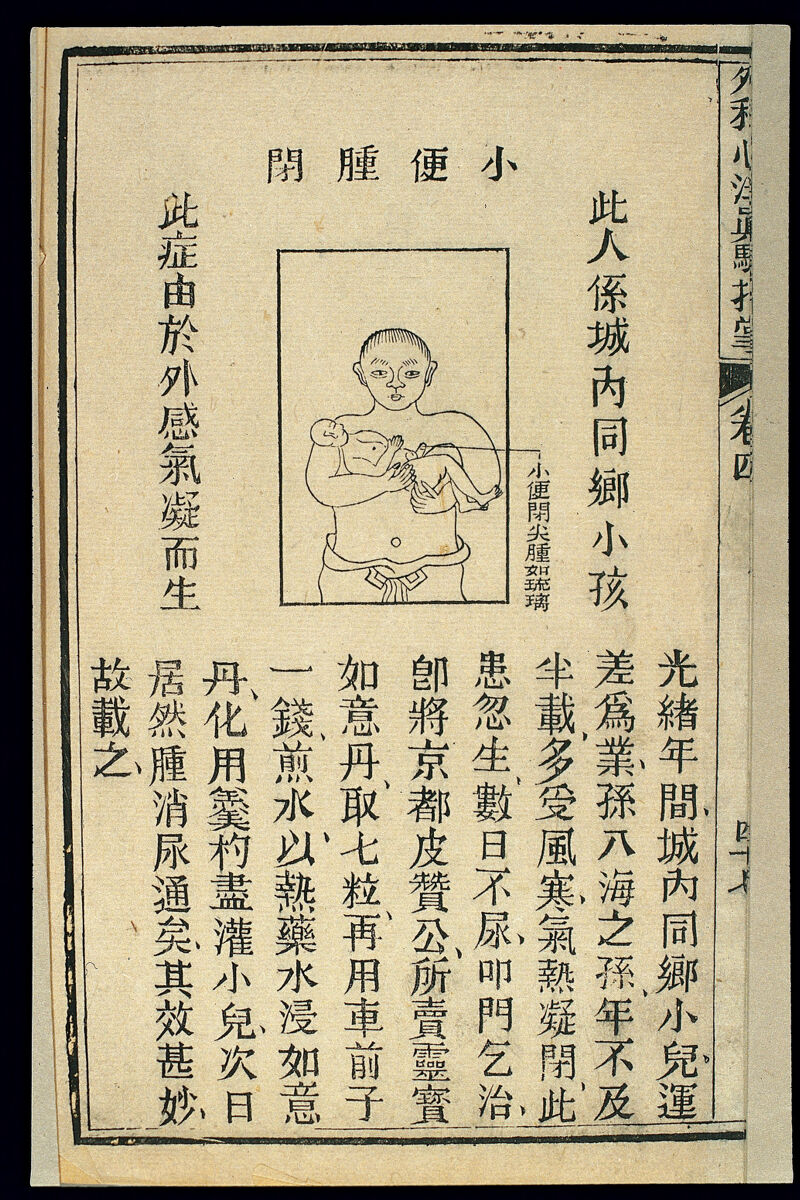 外科心法真驗指掌
卷四
四十七
小便腫閉
此人係城內同鄉小孩
小便閉尖腫如琉璃
此症由於外感氣凝而生
光緒年間、城內同鄉小兒、運
差爲業、孫八海之孫、年不及
半載、多受風寒、氣熱凝閉、此
患忽生、數日不尿、叩門乞治、
卽將京都皮贊公、所賣靈寶
如意丹、取七粒、再用車前子
一錢、煎水、以熱藥水浸如意
丹、化用羹杓盡灌小兒、次日
居然腫消尿通矣、其效甚妙、
故載之、